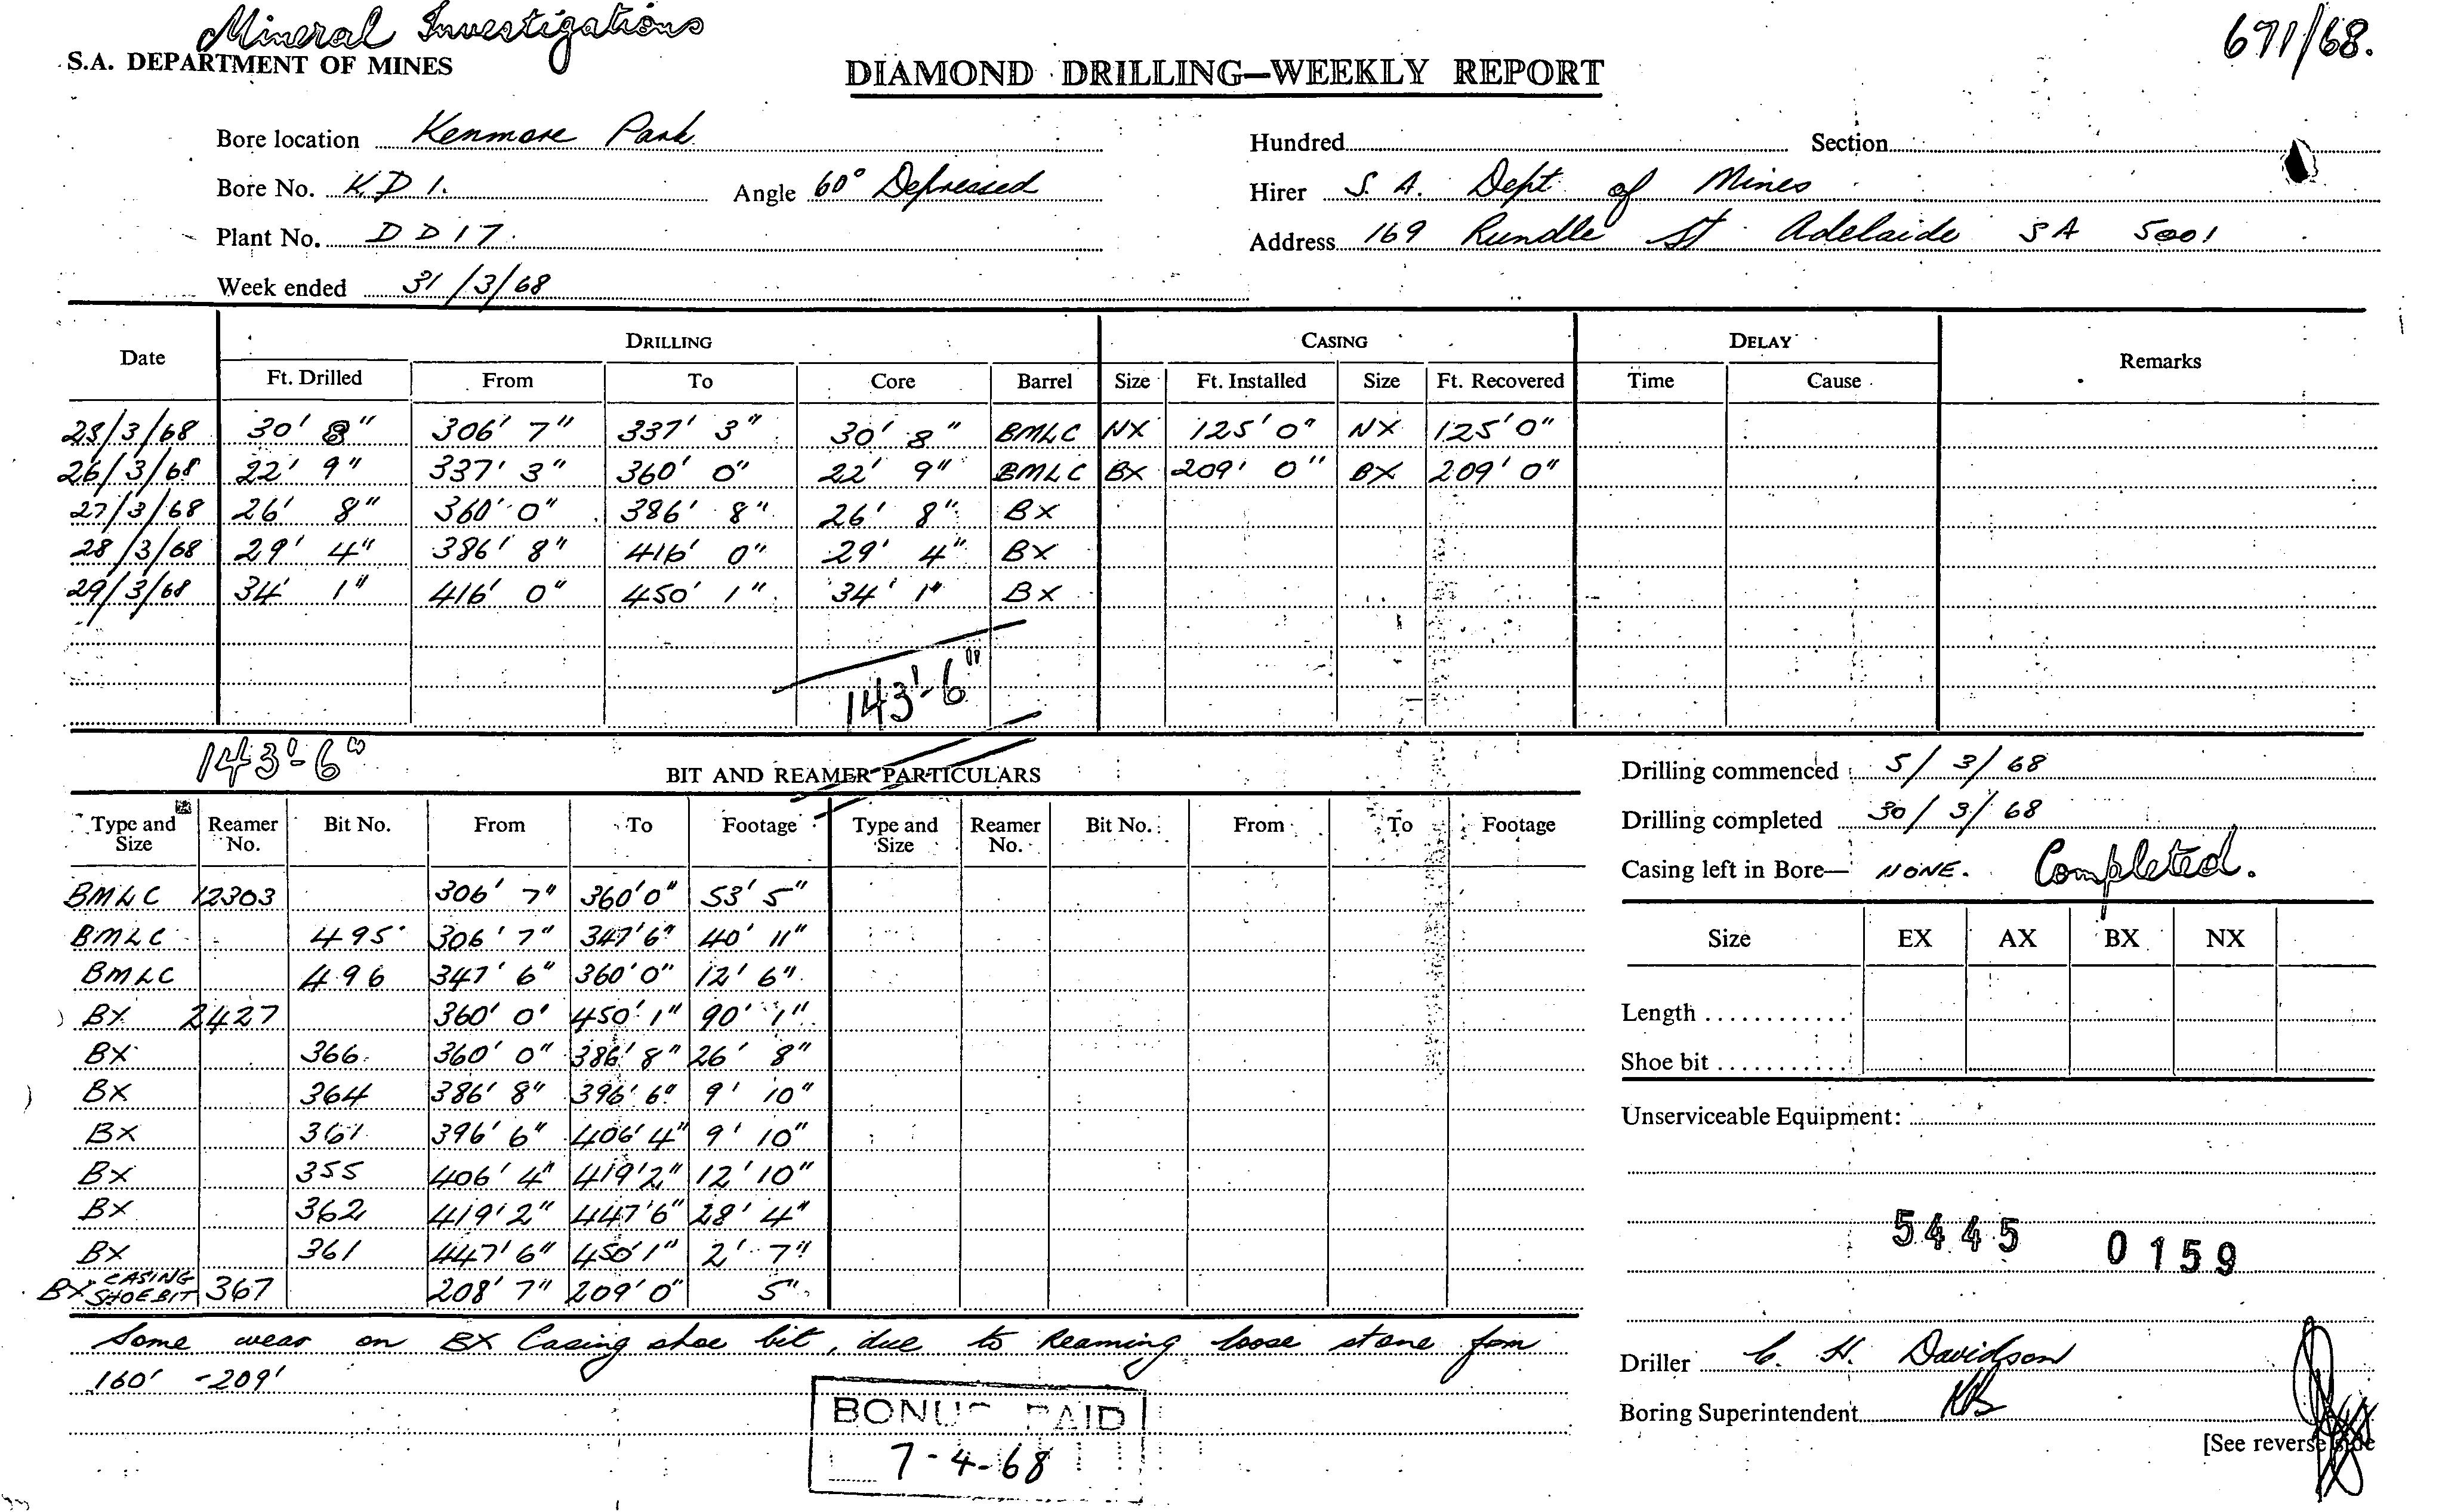 Mineral Investigations
671/68.
S.A. DEPARTMENT OF MINES
DIAMOND DRILLING—WEEKLY REPORT
Bore location Kenmore Park
Hundred Section
Bore No. KD 1. Angle 60° Depressed
Hirer S. A. Dept of Mines
Plant No. DD17.
Address 169 Rundle St Adelaide SA 5001
Week ended 31/3/68
Date DRILLING CASING DELAY Remarks
Ft. Drilled From To Core Barrel Size Ft. Installed Size Ft. Recovered Time Cause
25/3/68 30' 8" 306' 7" 337' 3" 30' 8" BMLC NX 125' 0" NX 125' 0"
26/3/68 22' 9" 337' 3" 360' 0" 22' 9" BMLC BX 209' 0" BX 209' 0"
27/3/68 26' 8" 360' 0" 386' 8" 26' 8" BX
28/3/68 29' 4" 386' 8" 416' 0" 29' 4" BX
29/3/68 34' 1" 416' 0" 450' 1" 34' 1" BX
143'-6"
143'-6"
BIT AND REAMER PARTICULARS
Type and Size Reamer No. Bit No. From To Footage Type and Size Reamer No. Bit No. From To Footage
BMLC 12303 306' 7" 360' 0" 53' 5"
BMLC 495 306' 7" 347' 6" 40' 11"
BMLC 496 347' 6" 360' 0" 12' 6"
BX 2427 360' 0' 450' 1" 90' 1"
BX 366 360' 0" 386' 8" 26' 8"
BX 364 386' 8" 396' 6" 9' 10"
BX 361 396' 6" 406' 4" 9' 10"
BX 355 406' 4" 419' 2" 12' 10"
BX 362 419' 2" 447' 6" 28' 4"
BX 361 447' 6" 450' 1" 2' 7"
BX CASING SHOE BIT 367 208' 7" 209' 0" 5"
Some wear on BX Casing shoe bit, due to Reaming loose stone fom
160' - 209'
BONUS PAID
7-4-68
Drilling commenced 5/3/68
Drilling completed 30/3/68
Casing left in Bore— NONE. Completed.
Size EX AX BX NX
Length
Shoe bit
Unserviceable Equipment:
5445 0159
Driller C. H. Davidson
Boring Superintendent
[See reverse side